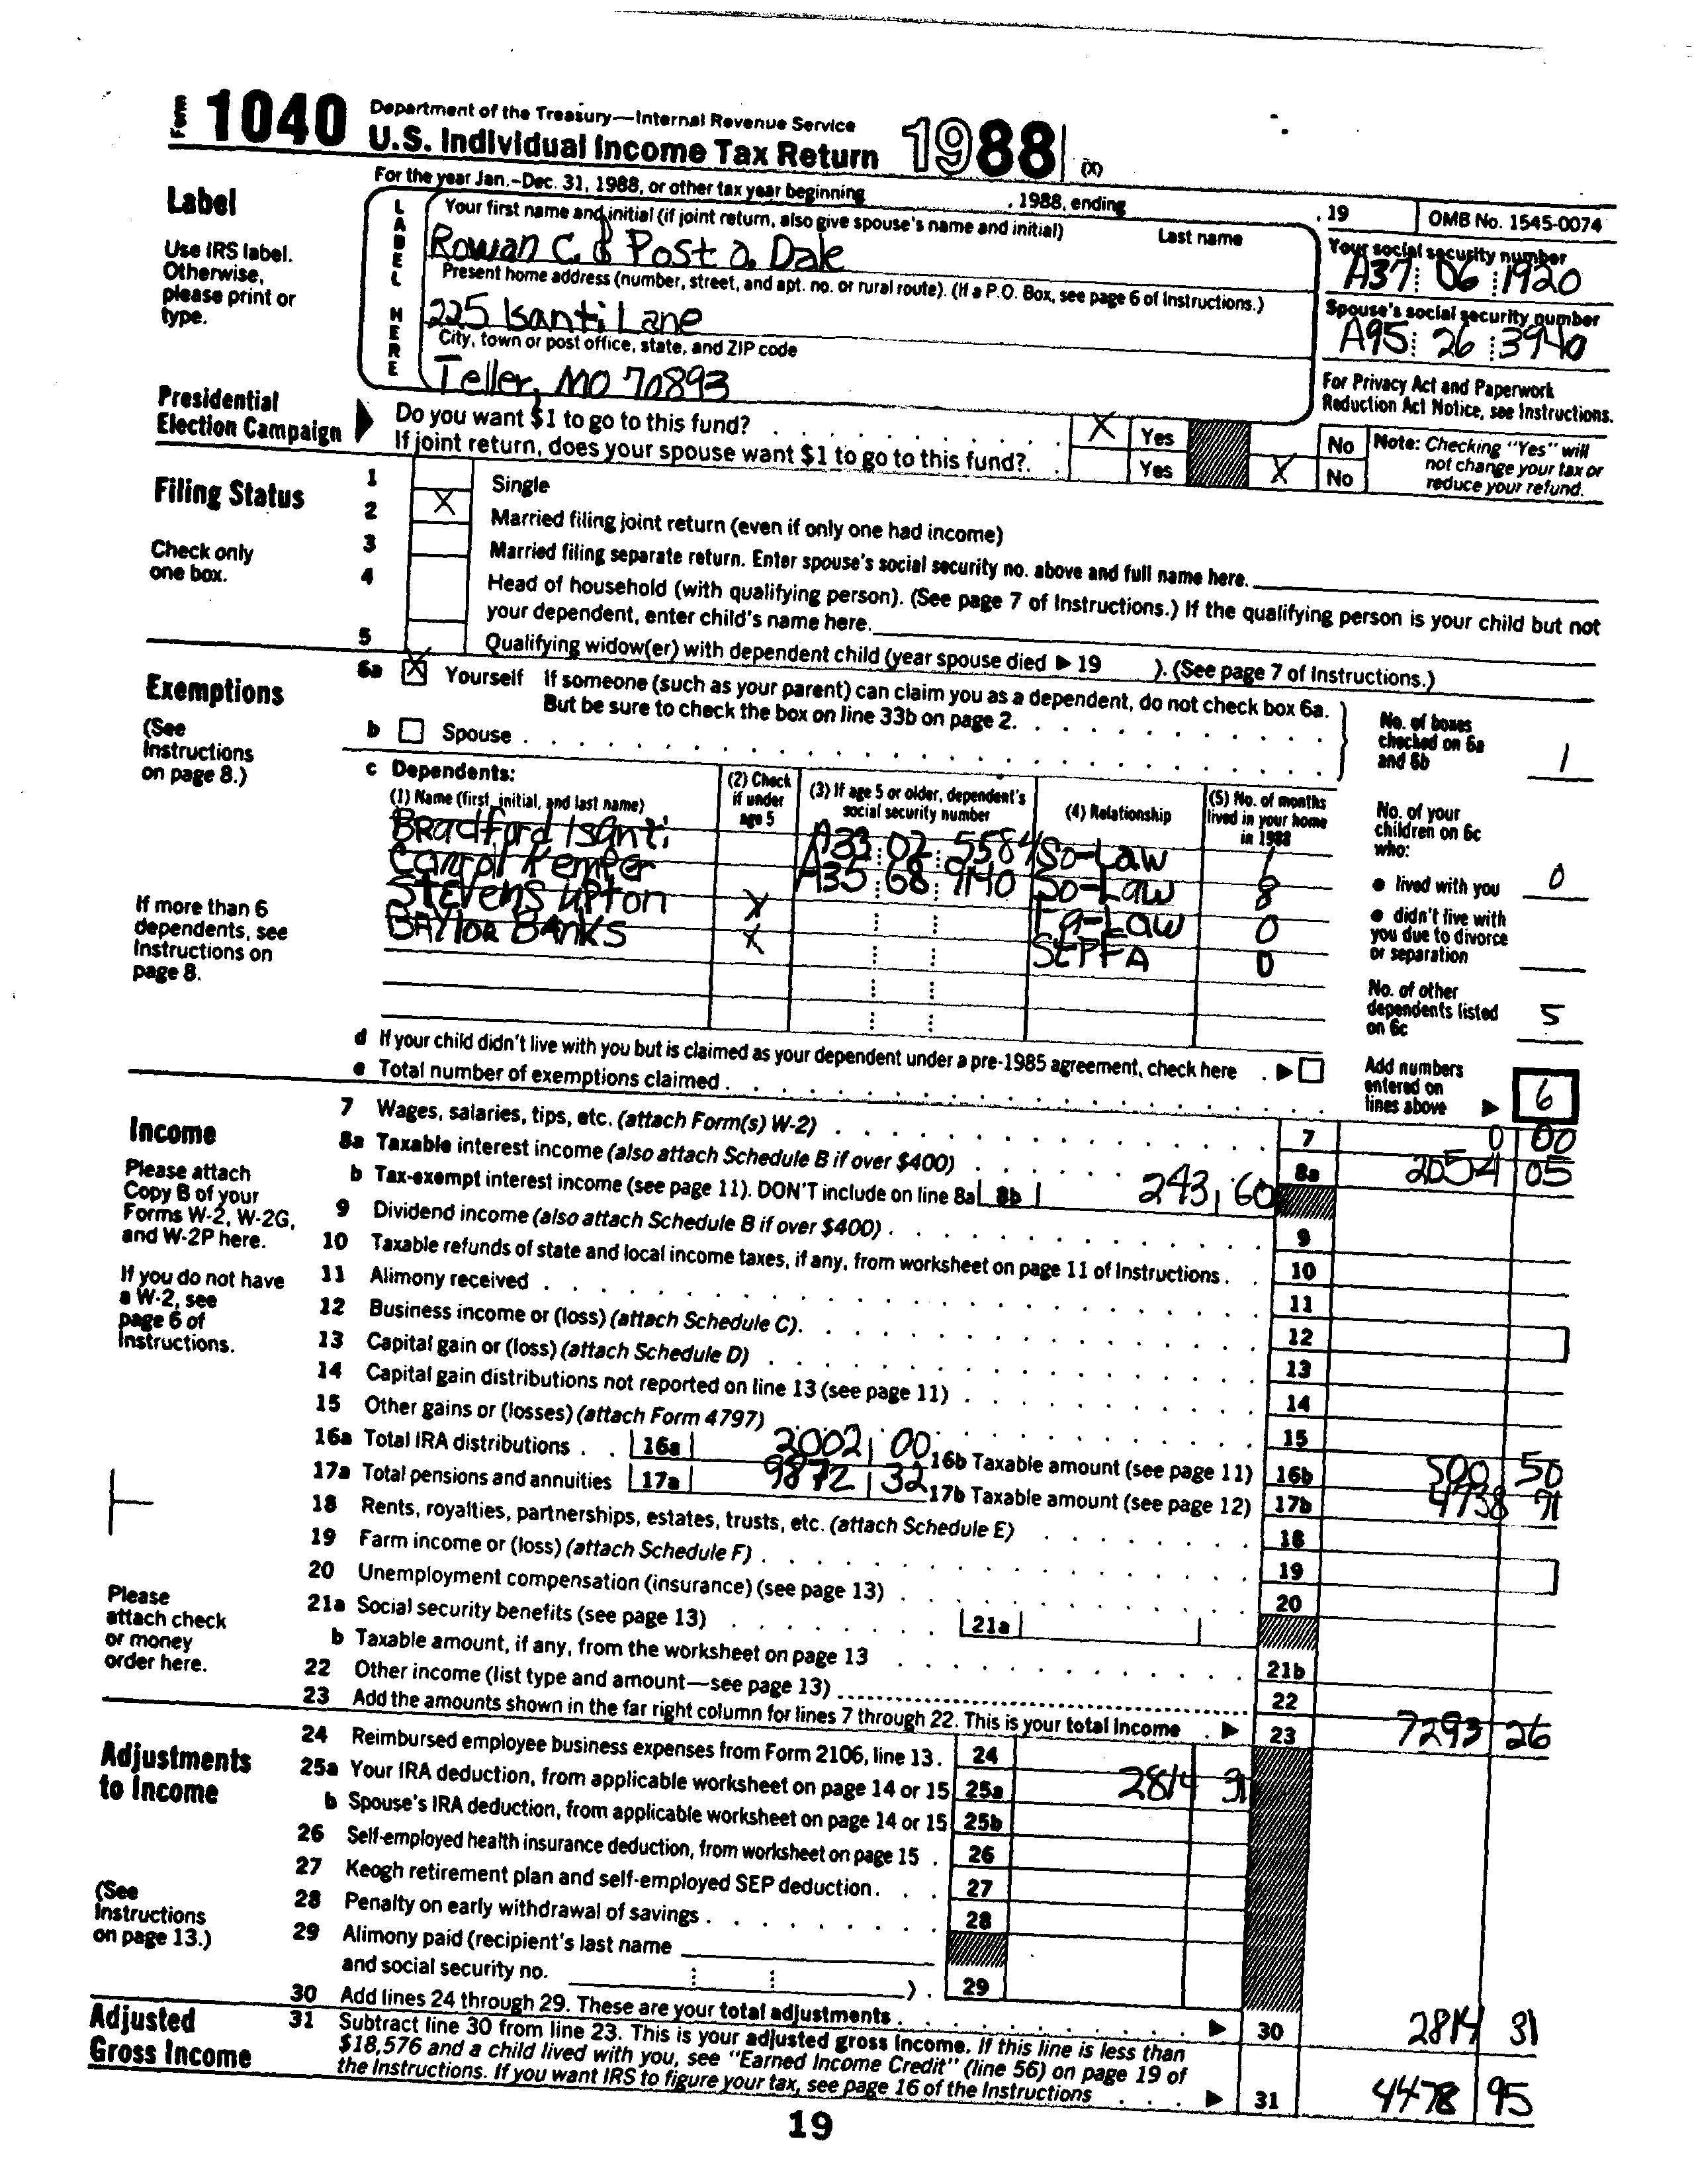 Form 1040 Department of the Treasury—Internal Revenue Service
U.S. Individual Income Tax Return 1988 (X)
For the year Jan.-Dec. 31, 1988, or other tax year beginning , 1988, ending , 19 OMB No. 1545-0074
Label
Use IRS label.
Otherwise,
please print or
type.
LABEL HERE
Your first name and initial (if joint return, also give spouse's name and initial) Last name
Rowan C. & Post a. Dale
Your social security number
A37 06 1920
Present home address (number, street, and apt. no. or rural route). (If a P.O. Box, see page 6 of Instructions.)
225 Isanti Lane
Spouse's social security number
A95 26 3940
City, town or post office, state, and ZIP code
Teller, MO 70893
For Privacy Act and Paperwork
Reduction Act Notice, see Instructions.
Presidential
Election Campaign
Do you want $1 to go to this fund? X Yes No
If joint return, does your spouse want $1 to go to this fund? Yes X No
Note: Checking "Yes" will
not change your tax or
reduce your refund.
Filing Status
Check only
one box.
1 Single
2 X Married filing joint return (even if only one had income)
3 Married filing separate return. Enter spouse's social security no. above and full name here.
4 Head of household (with qualifying person). (See page 7 of Instructions.) If the qualifying person is your child but not
your dependent, enter child's name here.
5 Qualifying widow(er) with dependent child (year spouse died ▶ 19 ). (See page 7 of Instructions.)
Exemptions
(See
Instructions
on page 8.)
6a X Yourself If someone (such as your parent) can claim you as a dependent, do not check box 6a.
But be sure to check the box on line 33b on page 2.
b Spouse
No. of boxes
checked on 6a
and 6b 1
c Dependents:
(1) Name (first, initial, and last name)
(2) Check
if under
age 5
(3) If age 5 or older, dependent's
social security number
(4) Relationship
(5) No. of months
lived in your home
in 1988
Bradford Isanti A33 02 5584 So-Law
Carrol Kemper A35 68 9140 So-Law 8
Stevens Upton X Fa-Law 0
BAYloR BANKS X STPFA 0
If more than 6
dependents, see
Instructions on
page 8.
No. of your
children on 6c
who:
● lived with you 0
● didn't live with
you due to divorce
or separation
No. of other
dependents listed
on 6c 5
d If your child didn't live with you but is claimed as your dependent under a pre-1985 agreement, check here ▶
e Total number of exemptions claimed
Add numbers
entered on
lines above ▶ 6
Income
Please attach
Copy B of your
Forms W-2, W-2G,
and W-2P here.
If you do not have
a W-2, see
page 6 of
Instructions.
7 Wages, salaries, tips, etc. (attach Form(s) W-2) 7 0 00
8a Taxable interest income (also attach Schedule B if over $400) 8a 2054 05
b Tax-exempt interest income (see page 11). DON'T include on line 8a 8b 243 60
9 Dividend income (also attach Schedule B if over $400) 9
10 Taxable refunds of state and local income taxes, if any, from worksheet on page 11 of Instructions 10
11 Alimony received 11
12 Business income or (loss) (attach Schedule C) 12
13 Capital gain or (loss) (attach Schedule D) 13
14 Capital gain distributions not reported on line 13 (see page 11) 14
15 Other gains or (losses) (attach Form 4797) 15
16a Total IRA distributions 16a 2002 00 16b Taxable amount (see page 11) 16b 500 50
17a Total pensions and annuities 17a 9872 32 17b Taxable amount (see page 12) 17b 4738 71
18 Rents, royalties, partnerships, estates, trusts, etc. (attach Schedule E) 18
19 Farm income or (loss) (attach Schedule F) 19
20 Unemployment compensation (insurance) (see page 13) 20
21a Social security benefits (see page 13) 21a
b Taxable amount, if any, from the worksheet on page 13 21b
22 Other income (list type and amount—see page 13) 22
23 Add the amounts shown in the far right column for lines 7 through 22. This is your total income ▶ 23 7293 26
Please
attach check
or money
order here.
Adjustments
to Income
(See
Instructions
on page 13.)
24 Reimbursed employee business expenses from Form 2106, line 13. 24
25a Your IRA deduction, from applicable worksheet on page 14 or 15 25a 2814 31
b Spouse's IRA deduction, from applicable worksheet on page 14 or 15 25b
26 Self-employed health insurance deduction, from worksheet on page 15 26
27 Keogh retirement plan and self-employed SEP deduction 27
28 Penalty on early withdrawal of savings 28
29 Alimony paid (recipient's last name
and social security no. ) 29
30 Add lines 24 through 29. These are your total adjustments ▶ 30 2814 31
Adjusted
Gross Income
31 Subtract line 30 from line 23. This is your adjusted gross income. If this line is less than
$18,576 and a child lived with you, see "Earned Income Credit" (line 56) on page 19 of
the Instructions. If you want IRS to figure your tax, see page 16 of the Instructions ▶ 31 4478 95
19